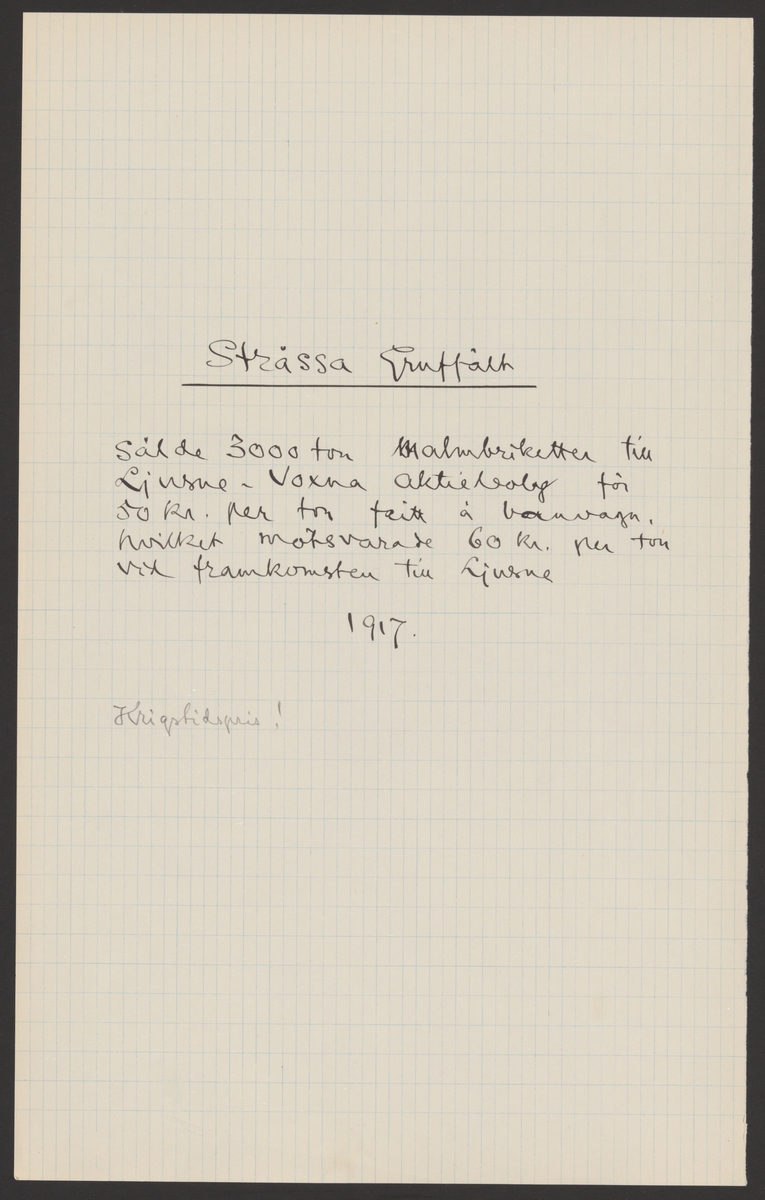 Stråssa Gruffält
Sålde 3000 ton Malmbriketter till
Ljusne - Voxna Aktiebolag för
50 kr. per ton fritt å banvagn,
hvilket motsvarade 60 kr. per ton
vid framkomsten till Ljusne
1917.
Krigstidspris!